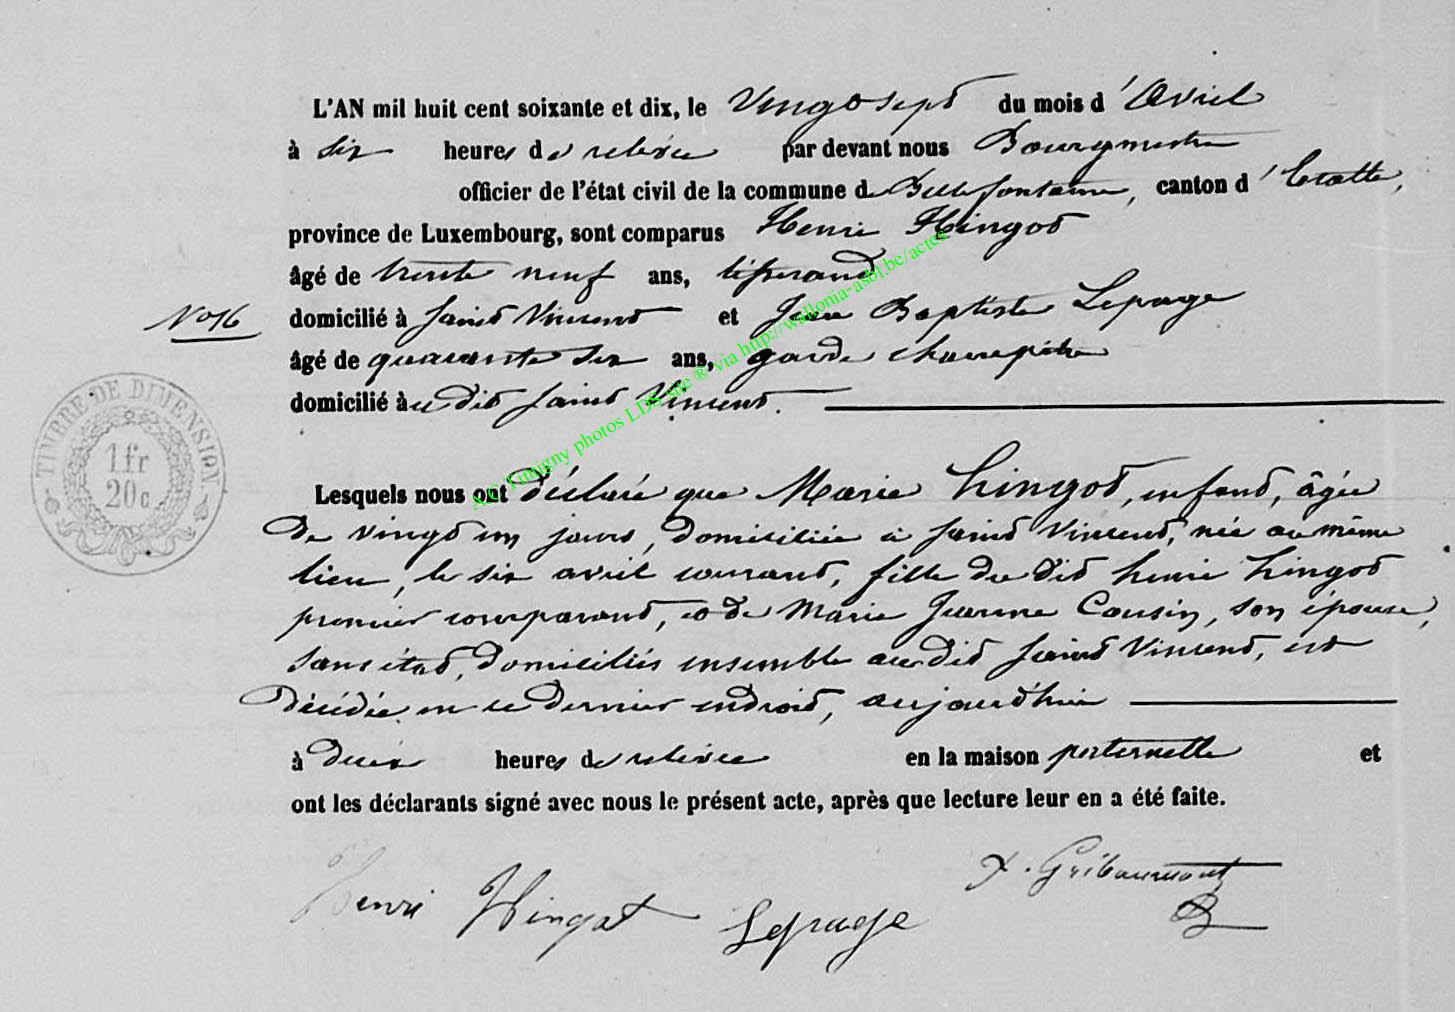 L'AN mil huit cent soixante et dix, le Vingt sept du mois d'Avril
à six heures de relevée par devant nous Bourgmestre
officier de l'état civil de la commune de Bellefontaine, canton d'Etalle,
province de Luxembourg, sont comparus Henri Hingot
âgé de trente neuf ans, tisserand
N° 16
domicilié à Saint Vincent et Jean Baptiste Lepage
âgé de quarante six ans, garde champêtre
domicilié audit Saint Vincent.
TIMBRE DE DIMENSION
1 fr
20 c
Lesquels nous ont déclaré que Marie hingot, enfant, âgée
de vingt un jours, domiciliée à Saint Vincent, née au même
lieu, le six avril courant, fille du dit henri hingot
premier comparant, et de Marie Jeanne Cousin, son épouse,
sans état, domiciliés ensemble audit Saint Vincent, est
décédée en ce dernier endroit, aujourd'hui
à deux heures de relevée en la maison paternelle et
ont les déclarants signé avec nous le présent acte, après que lecture leur en a été faite.
Henri Hingot Lepage X. Gribaumont
A.C. Tintigny photos LDS site ® via http://wallonia-asbl.be/actes